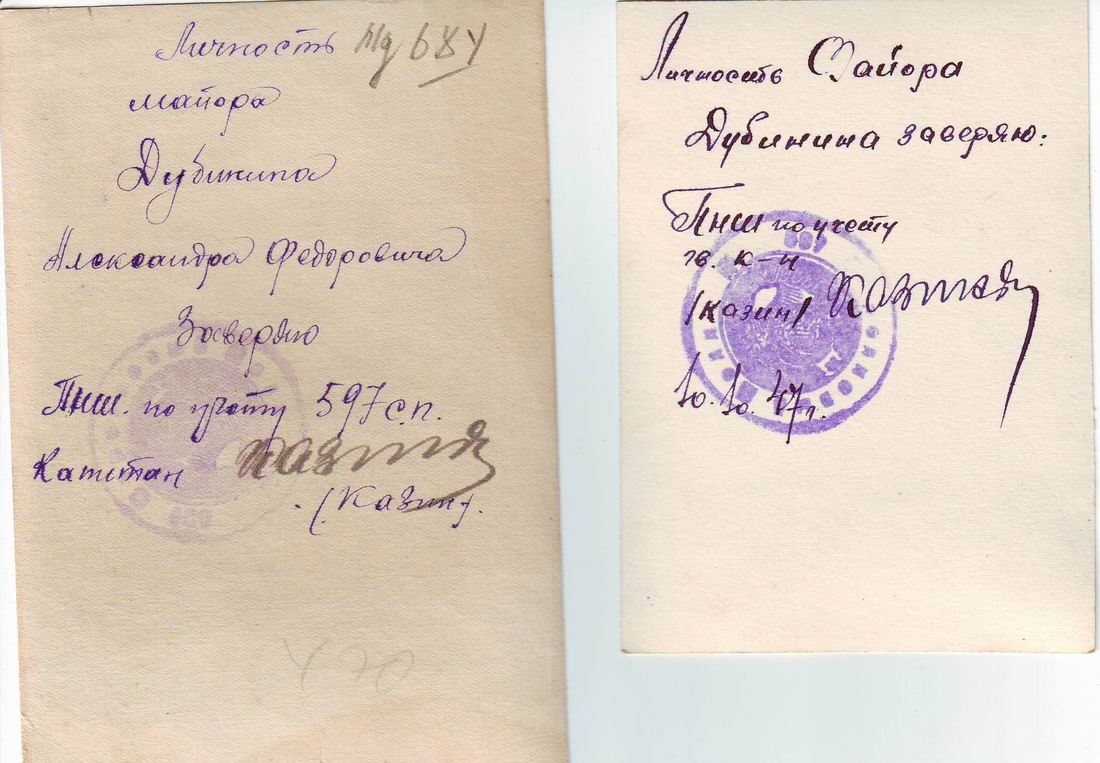 Личность
майора
Дубинина
Александра Федоровича
Заверяю
Пнш. по учету 597 с.п.
Капитан
(Казин).
Личность Майора
Дубинина заверяю:
ПНШ по учету
гв. к-н
/Казин/
10. 10. 47 г.